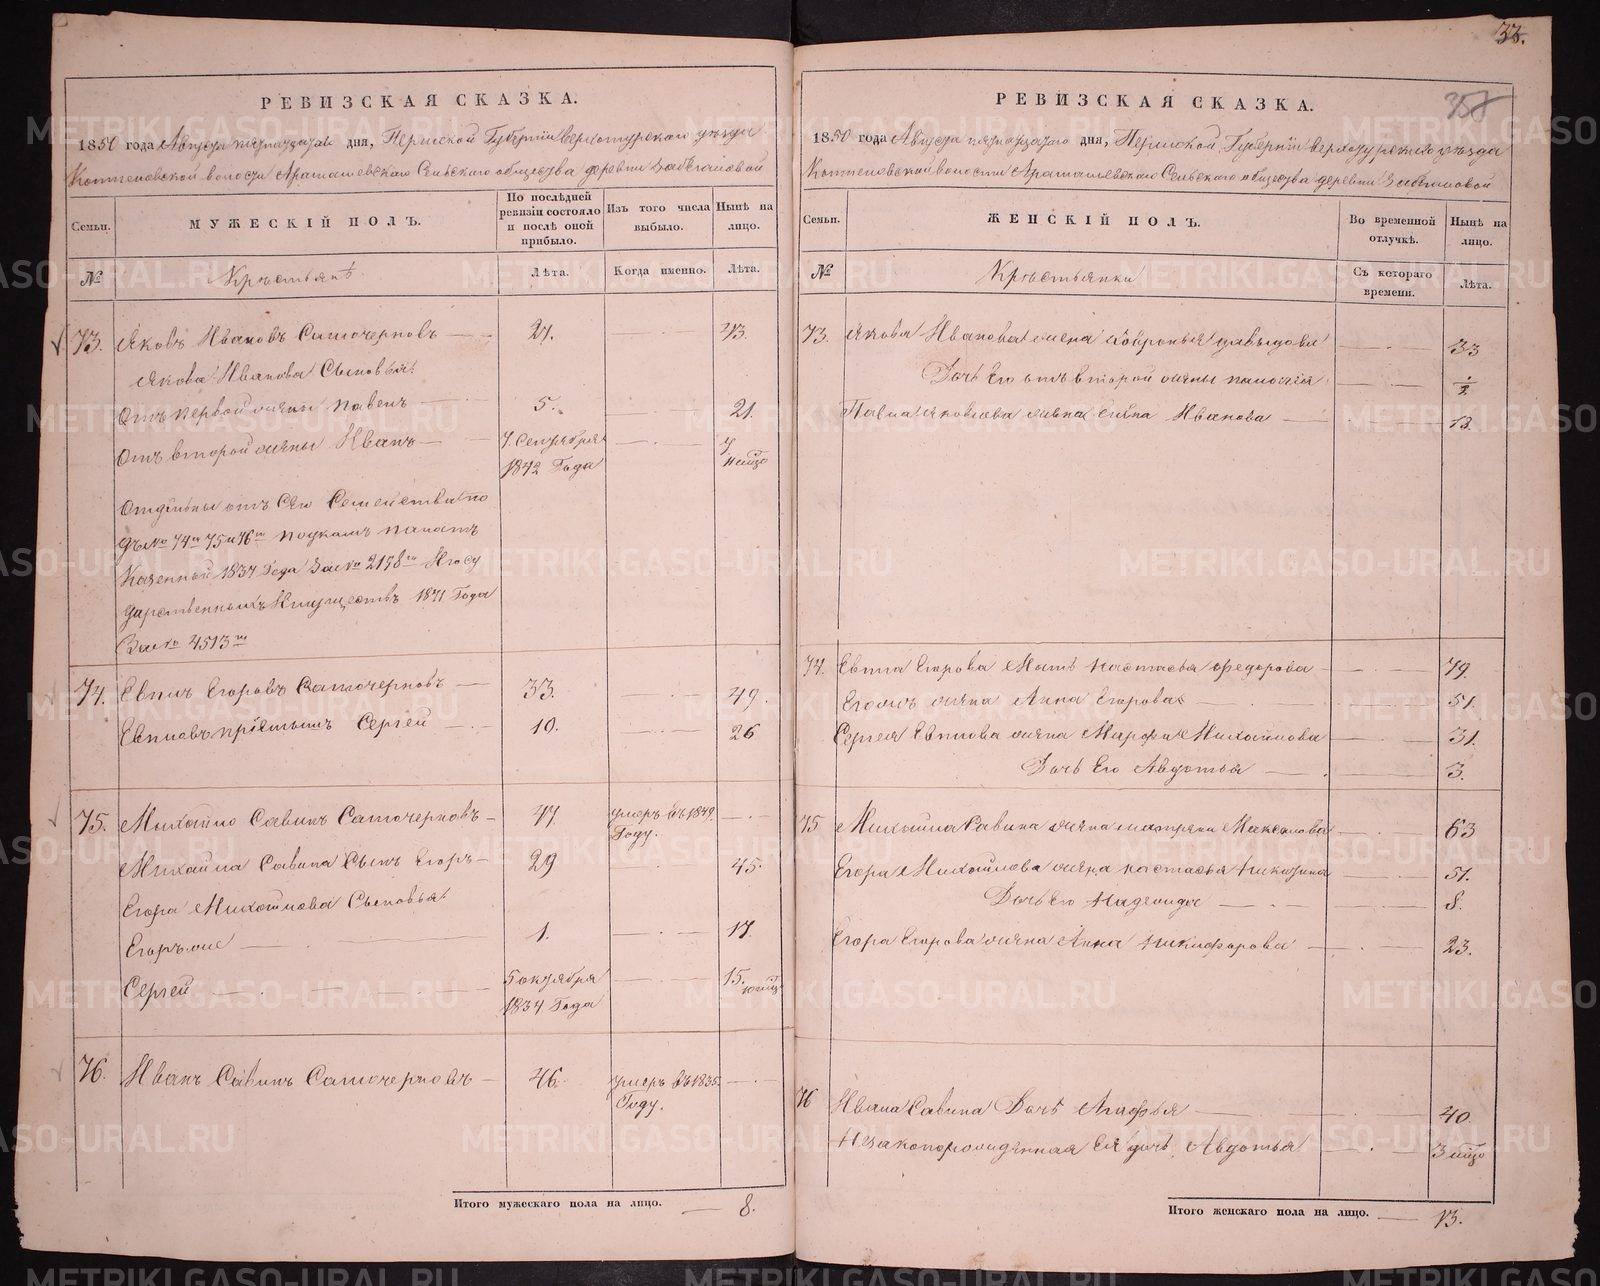 33.
358
РЕВИЗСКАЯ СКАЗКА.
1850 года Августа пятнадцатаго дня, Пермской Губернiи Верхотурскаго уѣзда
Коптеловской волости Арамашевскаго Сельскаго общества деревни
Семьи.
МУЖЕСКIЙ ПОЛЪ.
По послѣдней ревизiи состояло и послѣ оной прибыло.
Изъ того числа выбыло.
Нынѣ на лицо.
№
Крѣстьянѣ
Лѣта.
Когда именно.
Лѣта.
73. Яковъ Ивановъ Самочерновъ 27. 43.
Якова Иванова Сыновья:
Отъ первой жены Павелъ 5. 21.
Отъ второй жены Иванъ 7 Сентября 1842 Года 7
Отдѣлены отъ Сего Семейства по
дъ №№ 74м 75 и 76м Палаты
Казенной 1837 Года За № 2158м И Госу
дарственныхъ Имуществъ 1841 Года
За № 4513м
74. Егоровъ Самочерновъ 33. 49.
прiемышъ Сергей 10. 26
75. Михайло Савинъ Самочерновъ 77. умеръ въ 1849. Году.
Михайла Савина Сынъ Егоръ 29 45.
Егора Михайлова Сыновья:
Егоръ же 1. 17.
Сергей 5 октября 1834 Года 15.
76. Иванъ Савинъ Самочерновъ 46. умеръ въ 1835. Году.
Итого мужескаго пола на лицо. 8.
РЕВИЗСКАЯ СКАЗКА.
1850 года Августа пятнадцатаго дня, Пермской Губернiи Верхотурскаго уѣзда
Коптеловской волости Арамашевскаго Сельскаго общества деревни
Семьи.
ЖЕНСКIЙ ПОЛЪ.
Во временной отлучкѣ.
Нынѣ на лицо.
№
Крѣстьянки
Съ котораго времени.
Лѣта.
73. Якова Иванова жена Давыдова 33
Дочь Его отъ второй жены 1/2
Павла Яковлева жена Иванова
74. Егорова Мать Настасья Федорова 79.
Его жъ жена Анна Егорова 51.
Сергея жена Марфа Михайлова 31.
Дочь Его Авдотья 3.
75 Михайла Савина жена Матрена Максимова 63
Егора Михайлова жена Настасья Никитина 51.
Дочь Его Надежда 8.
Егора Егорова жена Анна Никифорова 23.
76 Ивана Савина Дочь Агафья 40.
Незаконорожденная Ея дочь Авдотья
Итого женскаго пола на лицо. 13.
METRIKI.GASO-URAL.RU